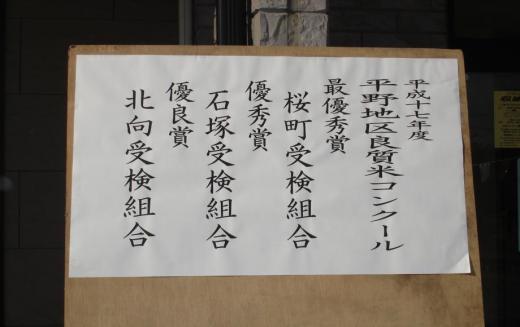 平成十七年度
平野地区良質米コンクール
最優秀賞
桜町受検組合
優秀賞
石塚受検組合
優良賞
北向受検組合